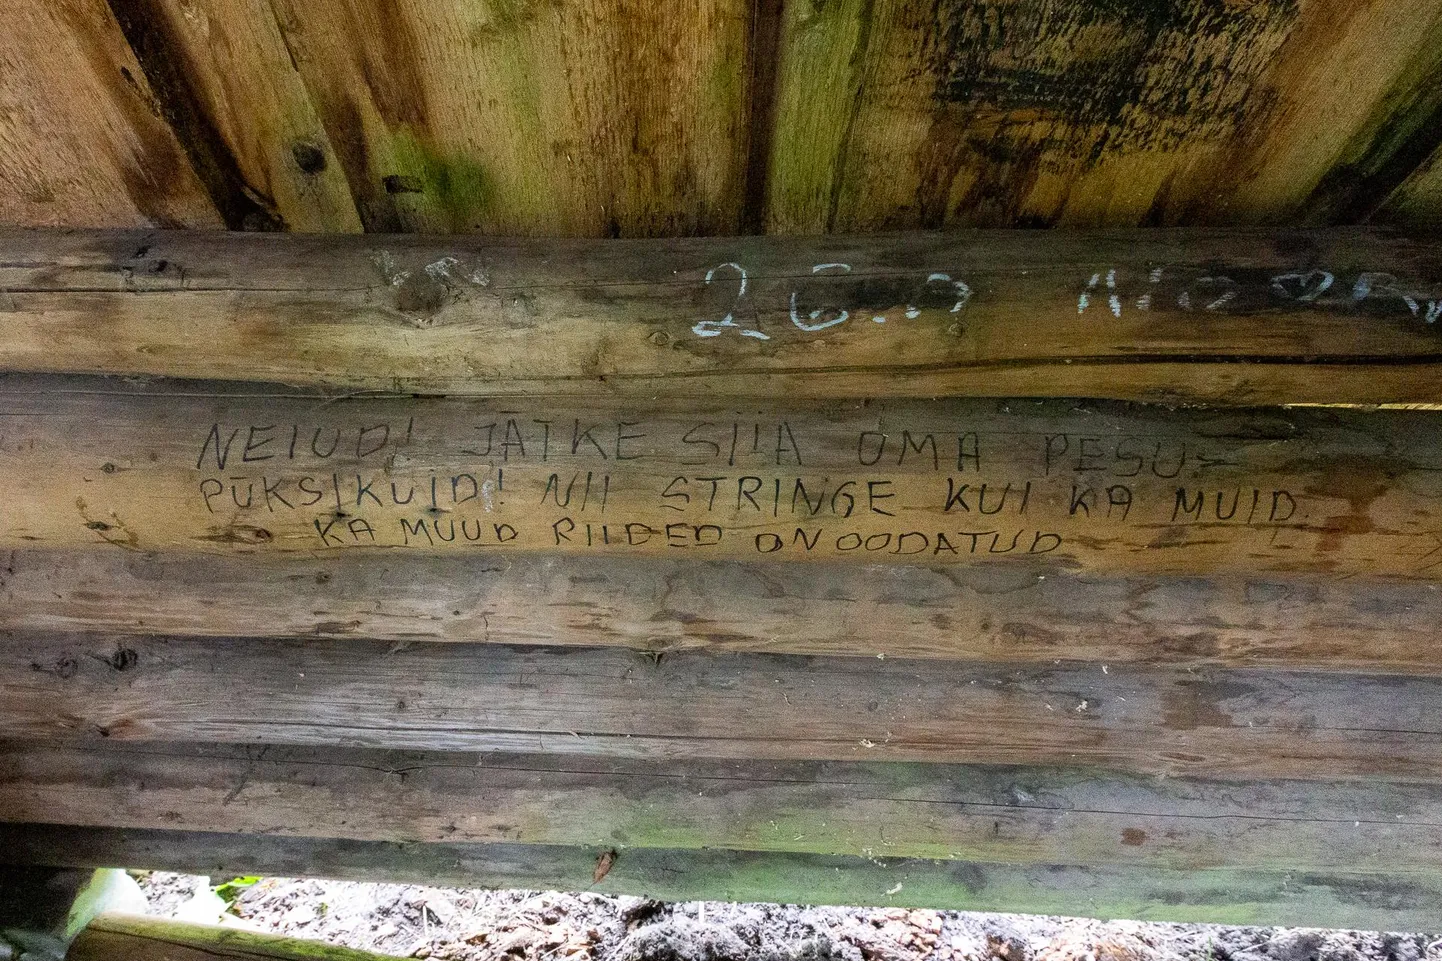 26.
NEIUD! JÄTKE SIIA OMA PESU-
PÜKSIKUID! NII STRINGE KUI KA MUID.
KA MUUD RIIDED ON OODATUD